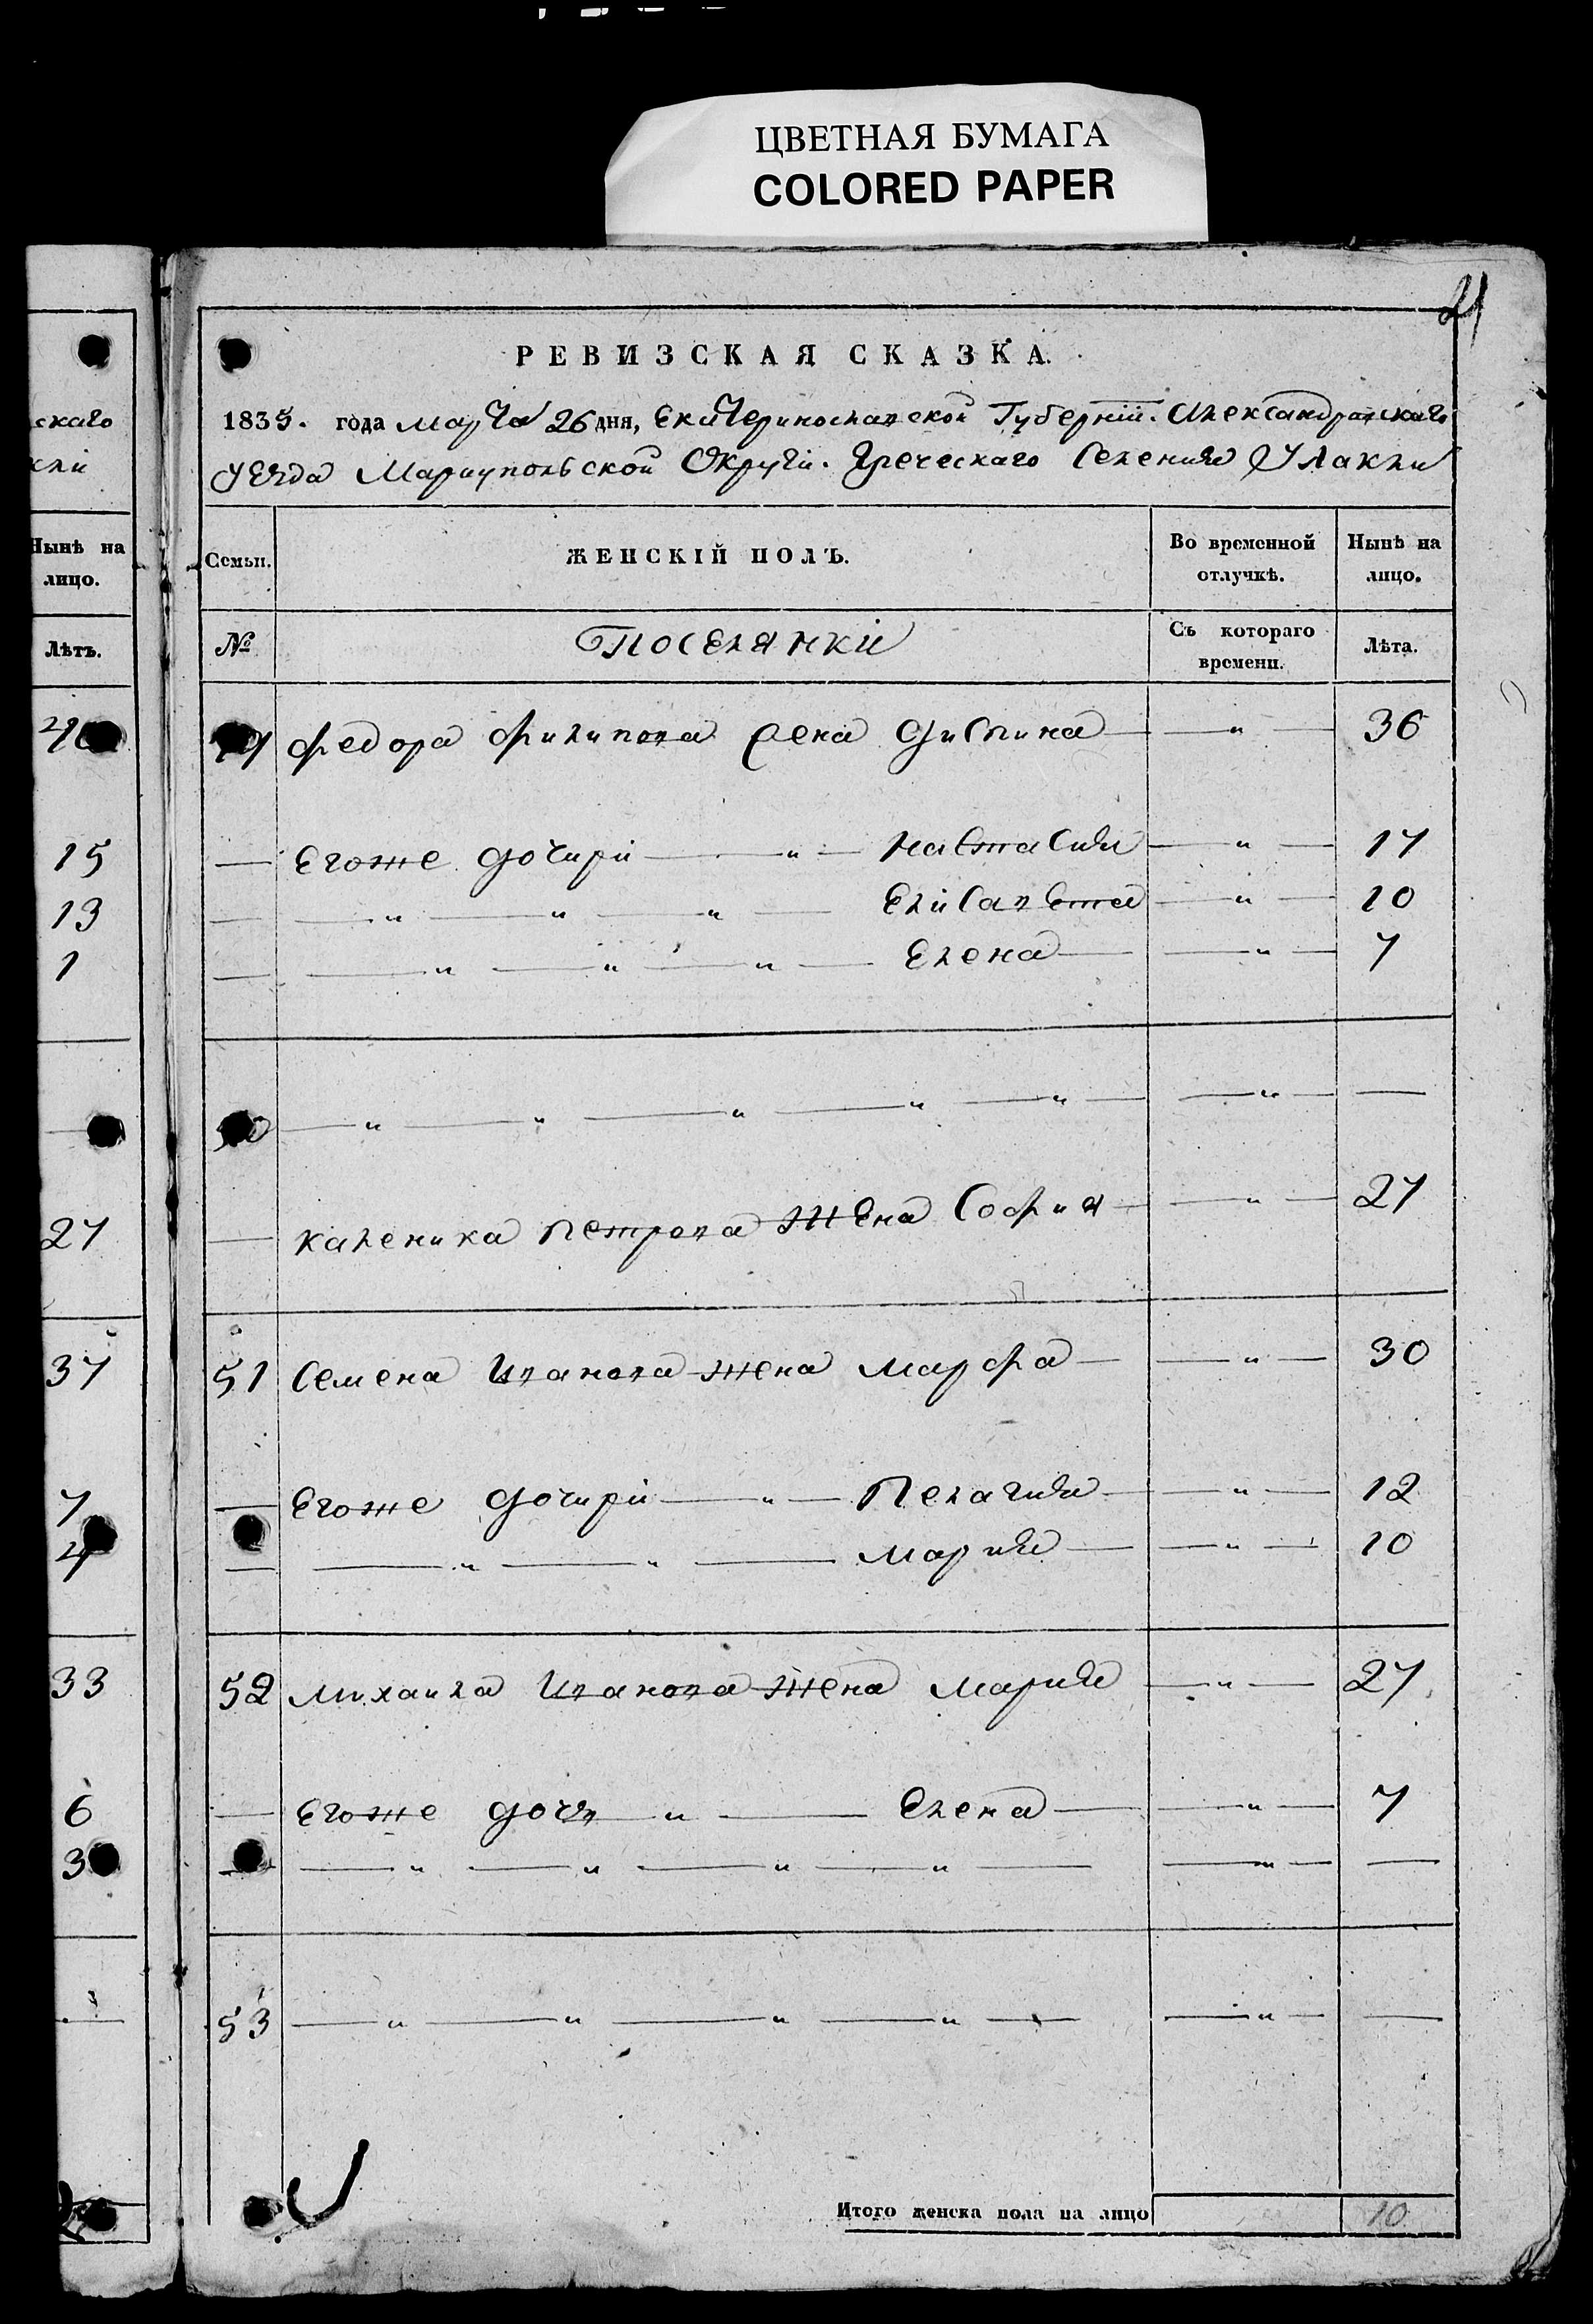 ЦВЕТНАЯ БУМАГА
COLORED PAPER
21
РЕВИЗСКАЯ СКАЗКА.
1835. года Марта 26 дня, Екатеринославской Губерніи. Александровскаго
Уезда Мариупольской Округи. Греческаго Селения Улакли
Семьи. ЖЕНСКІЙ ПОЛЪ. Во временной отлучкѣ. Нынѣ на лицо.
№ Поселянки Съ котораго времени. Лѣта.
Федора Филипова 36
Егоже дочири Настасия 17
Елисавета 10
Елена 7
Каленика Петрова жена София 27
51 Семена Иванова жена Марфа 30
Егоже дочири Пелагия 12
Мария 10
52 Михаила Иванова жена Мария 27
Егоже дочь Елена 7
53
Итого женска пола на лицо 10
скаго
кли
Нынѣ на
лицо.
Лѣтъ.
15
13
1
27
37
7
4
33
6
3